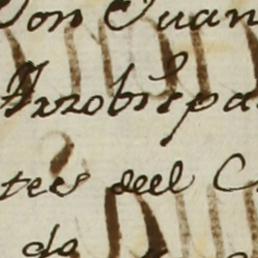 Don Juan
Arzobispa
tes del C
do